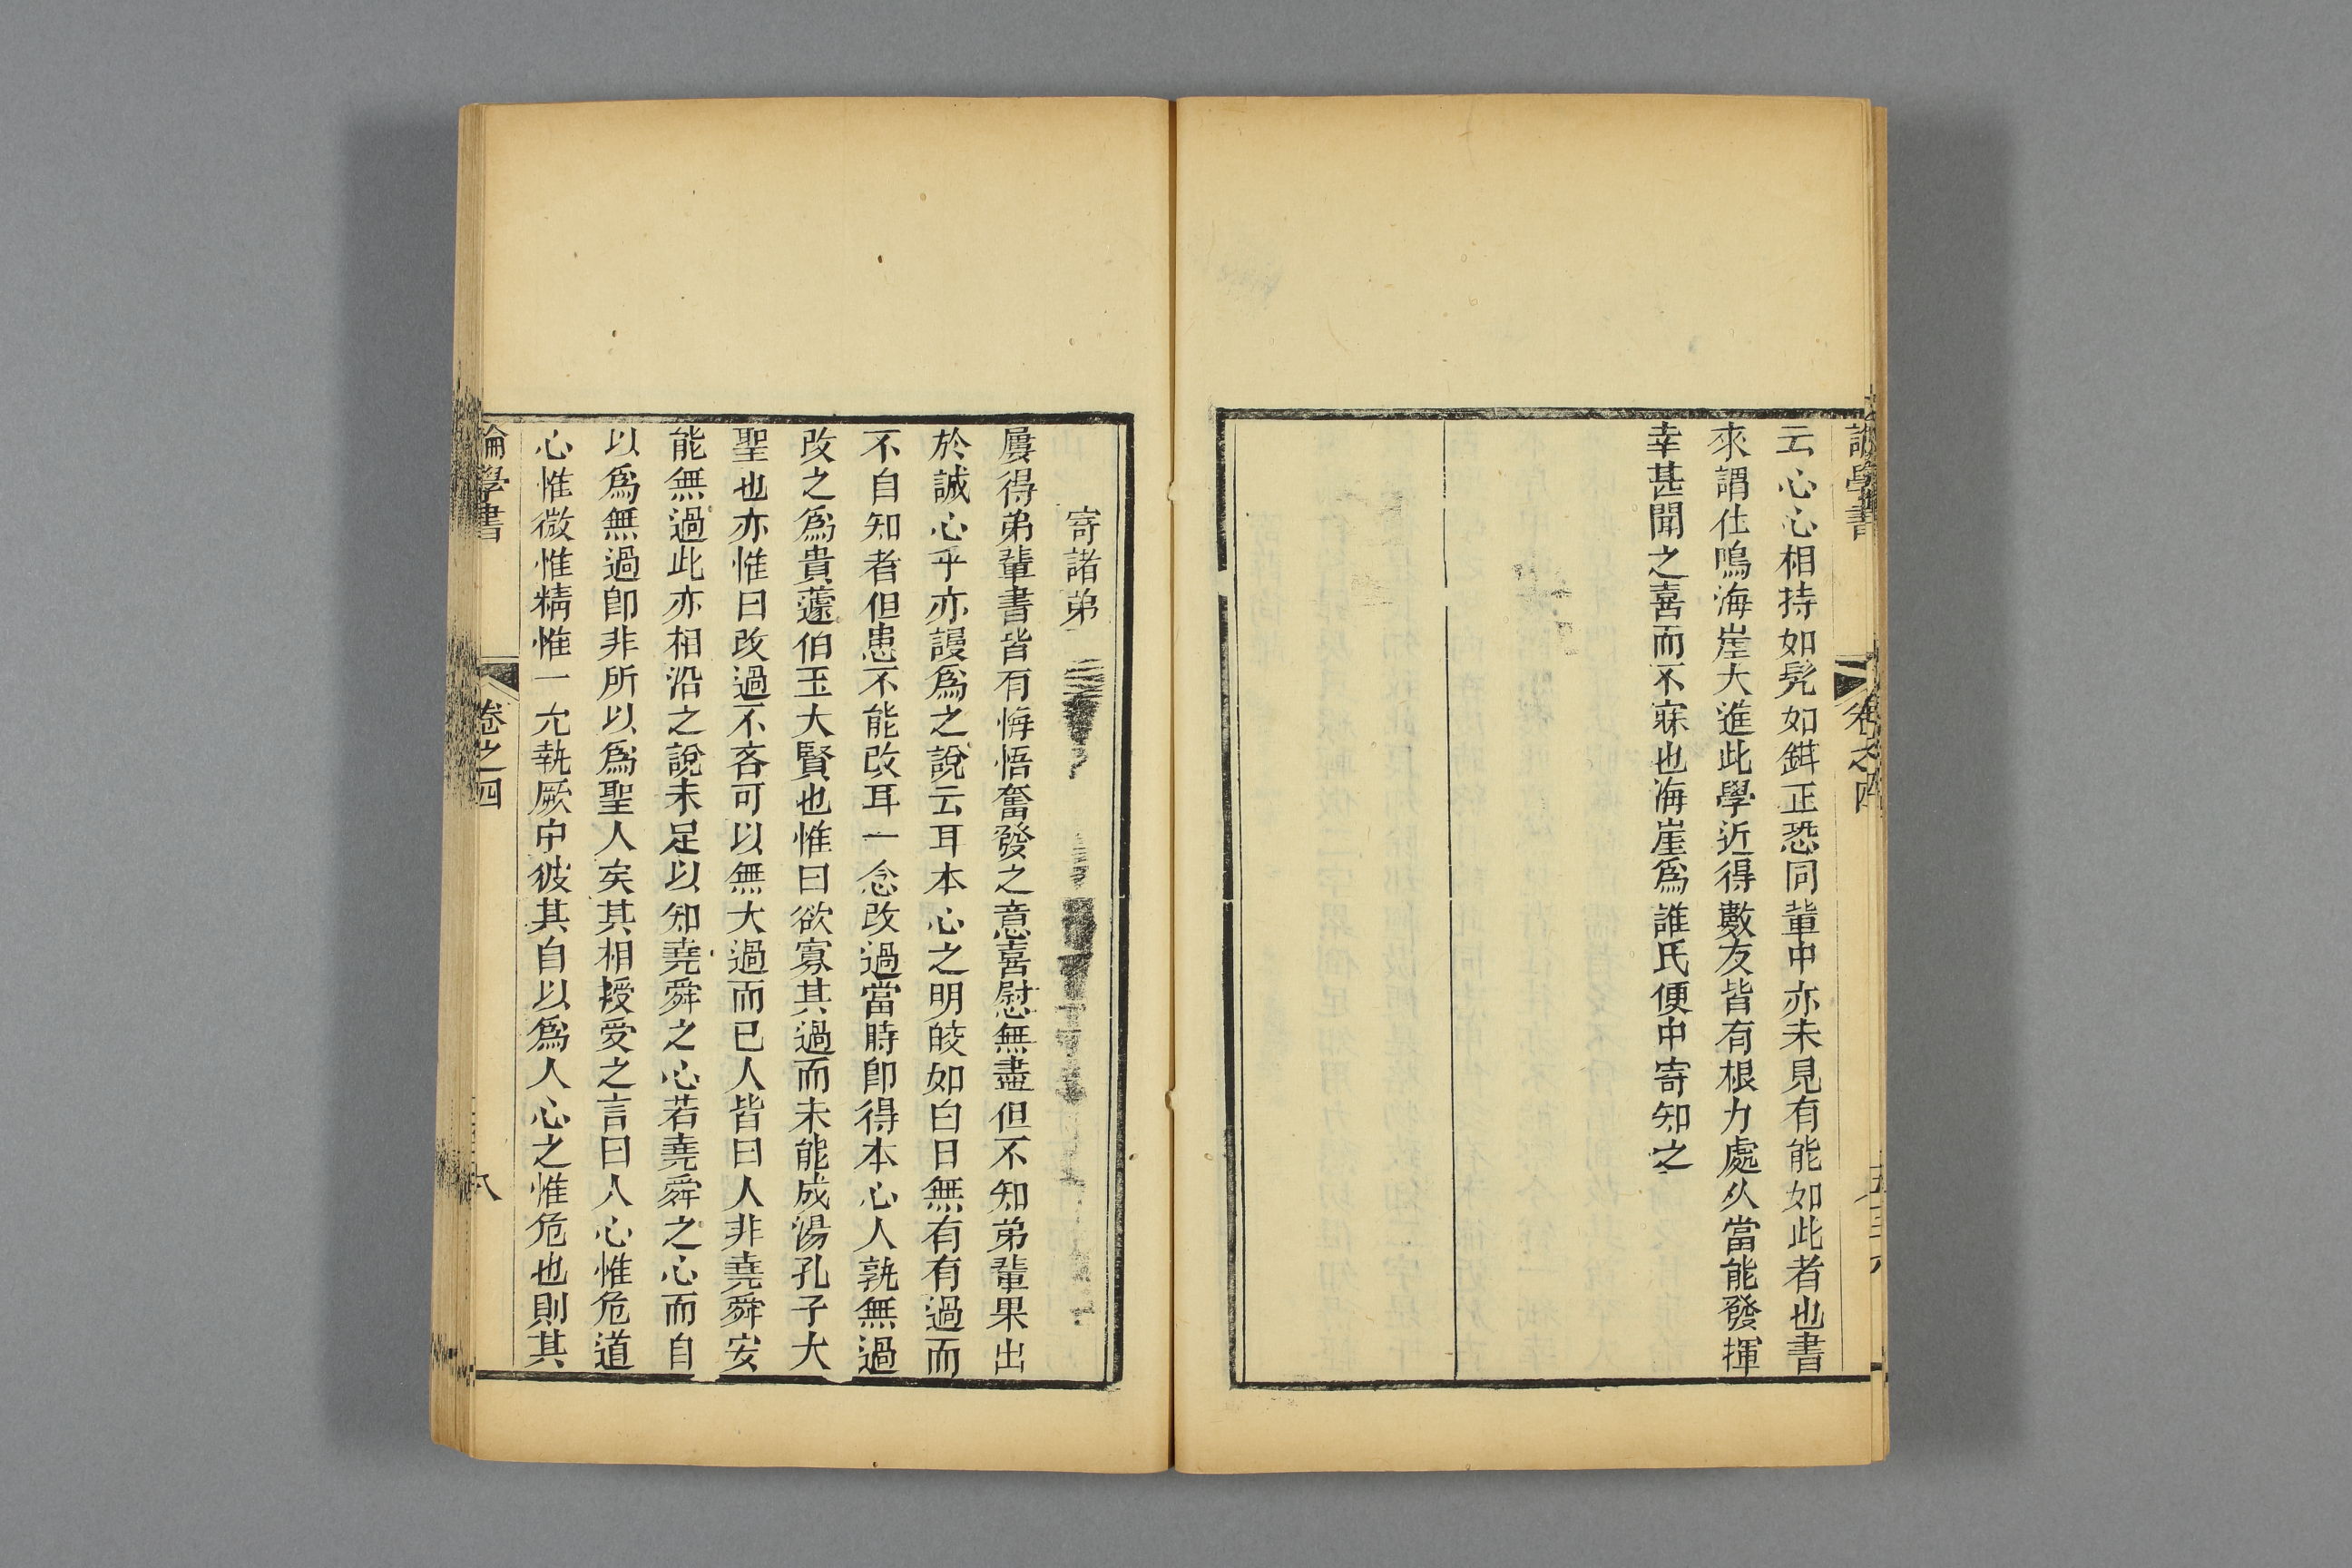 論學書
卷之四
云心心相持如髠如鉗正恐同輩中亦未見有能如此者也書
來謂仕鳴海崖大進此學近得數友皆有根力處久當能發揮
幸甚聞之喜而不寐也海崖爲誰氏便中寄知之
寄諸弟
屢得弟輩書皆有悔悟奮發之意喜慰無盡但不知弟輩果出
於誠心乎亦謾爲之說云耳本心之明皎如白日無有有過而
不自知者但患不能改耳一念改過當時卽得本心人孰無過
改之爲貴蘧伯玉大賢也惟曰欲寡其過而未能成湯孔子大
聖也亦惟曰改過不吝可以無大過而已人皆曰人非堯舜安
能無過此亦相沿之說未足以知堯舜之心若堯舜之心而自
以爲無過卽非所以爲聖人矣其相授受之言曰人心惟危道
心惟微惟精惟一允執厥中彼其自以爲人心之惟危也則其
論學書
卷之四